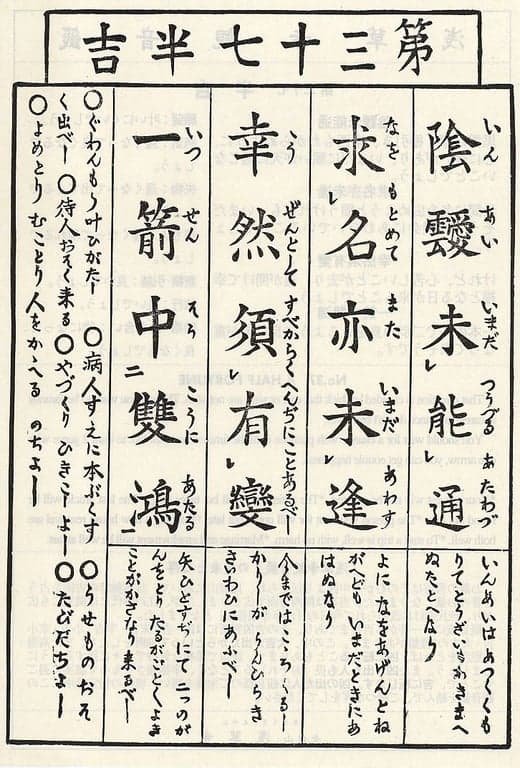 第三十七半吉
陰靉未レ能レ通
いん あい いまだ つうずる あたわず
いんあいはあつくくも
りてとうざいもわきまへ
ぬたとへなり
求レ名亦未レ逢
なを もとめて また いまだ あわす
よになをあげんとね
がへどもいまだときにあ
はぬなり
幸然須レ有レ變
ぜんとして すべからく
今まではこころくるし
かりしがうんひらき
さいわひにあふべし
一箭中二雙鴻
いつ せん そう こうに あたる
矢ひとすぢにて二つのが
んをとりたるがごとくよき
ことがかさなり来るべし
○ぐわんもう叶ひがたし ○病人すえに本ぶくす ○うせものおそ
く出べし ○待人おそく来る ○やづくりひきこしよし ○たびだちよし
○よめとりむことり人をかゝへるのちよし